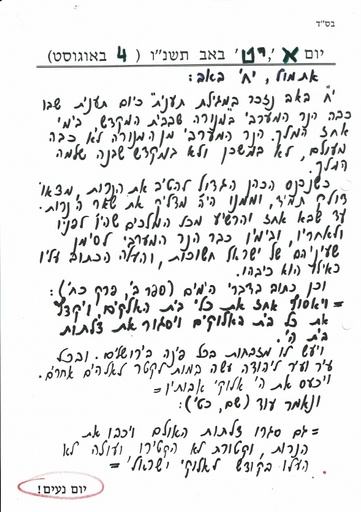 בס"ד
יום א', י"ט באב תשנ"ו ( 4 באוגוסט)
אתמול, י"ח באב:
י"ח באב נזכר במגילת תענית כיום תענית שבו
כבה הנר המערבי במנורה שבבית המקדש בימי
אחז המלך. הנר המערבי מן המנורה לא כבה
מעולם, לא במשכן ולא במקדש שבנה שלמה
המלך.
כשנכנס הכהן הגדול להטיב את הנרות, מצאו
דולק תמיד, וממנו היה מדליק את שאר הנרות.
עד שבא אחז והרשיע מכל המלכים שהיו לפניו
ולאחריו, ובימיו כבה הנר המערבי לסימן
שעיניהם של ישראל חשוכות, והעלה הכתוב עליו
כאילו הוא כיבהו.
וכן כתוב בדברי הימים (ספר ב', פרק כח'):
=ויאסוף אחז את כלי בית האלוקים, ויקצץ
את כל בית האלוקים ויסגור את דלתות
בית ה'.
ויעש לו מזבחות בכל פינה בירושלים. ובכל
עיר ועיר ליהודה עשה במות לקטר לאלהים אחרים.
ויכעס את ה' אלוקי אבותיו=
ונאמר עוד (שם, כט'):
=גם סגרו דלתות האולם ויכבו את
הנרות, וקטורת לא הקטירו ועולה לא
העלו בקודש לאלוקי ישראל=
יום נעים!